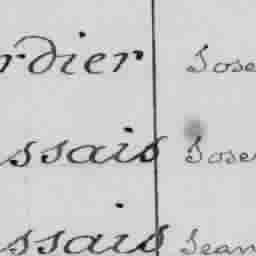 rdier Jose
ssais Jose
ssais Jean